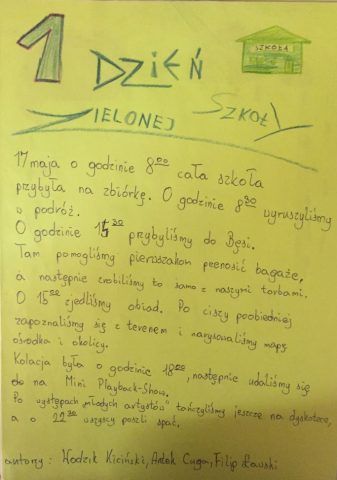 1 DZIEŃ
SZKOŁA
ZIELONEJ SZKOŁY
17 maja o godzinie 8⁰⁰ cała szkoła
przybyła na zbiórkę. O godzinie 8³⁰ wyruszyliśmy
w podróż.
O godzinie 14³⁰ przybyliśmy do Bęsi.
Tam pomogliśmy pierwszakom przenosić bagaże,
a następnie zrobiliśmy to samo z naszymi torbami.
O 15⁰⁰ zjedliśmy obiad. Po ciszy poobiedniej
zapoznaliśmy się z terenem i narysowaliśmy mapę
ośrodka i okolicy.
Kolacja była o godzinie 18⁰⁰, następnie udaliśmy się
na Mini Playback-Show.
Po występach „młodych artystów" tańczyliśmy jeszcze na dyskotece,
a o 22³⁰ wszyscy poszli spać.
autorzy: Kiciński, Antek Cuga, Filip Ławski